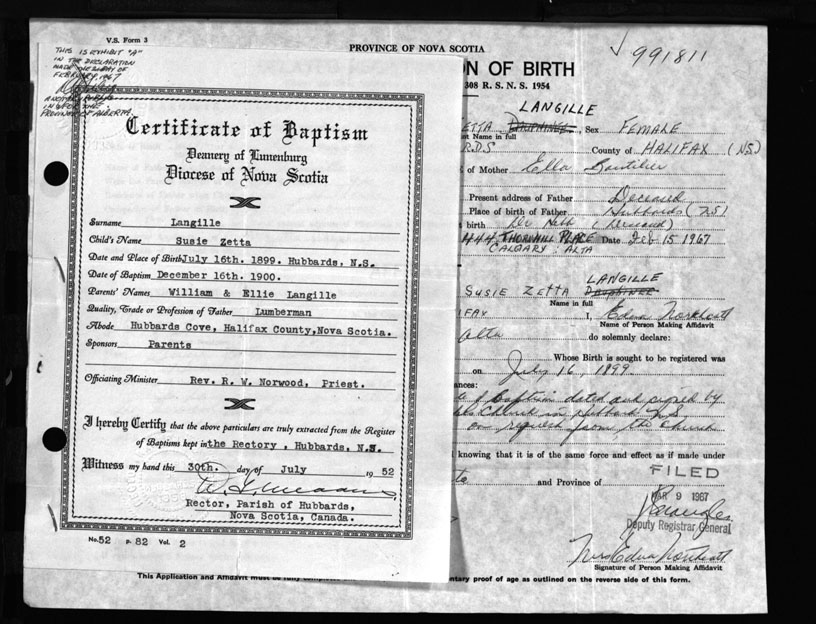 V.S. Form 3
THIS IS EXHIBIT "A"
IN THE DECLARATION
MADE THE DAY OF
FEBRUARY, 1967
A NOTARY PUBLIC
IN & FOR THE
PROVINCE OF ALBERTA.
Certificate of Baptism
Deanery of Lunenburg
Diocese of Nova Scotia
Surname Langille
Child's Name Susie Zetta
Date and Place of Birth July 16th. 1899. Hubbards, N.S.
Date of Baptism December 16th. 1900.
Parents' Names William & Ellie Langille
Quality, Trade or Profession of Father Lumberman
Abode Hubbards Cove, Halifax County, Nova Scotia.
Sponsors Parents
Officiating Minister Rev. R. W. Norwood, Priest.
I hereby Certify that the above particulars are truly extracted from the Register
of Baptisms kept in the Rectory, Hubbards, N.S.
Witness my hand this 30th. day of July 1952
Rector, Parish of Hubbards,
Nova Scotia, Canada.
No. 52 p. 82 Vol. 2
PROVINCE OF NOVA SCOTIA
991811
ON OF BIRTH
308 R. S. N. S. 1954
LANGILLE
ETTA DAUPHINEE Sex FEMALE
nt Name in full
RDS County of HALIFAX (NS)
of Mother Ella Boutilier
Present address of Father Deceased
Place of birth of Father Hubbards (NS)
birth (Deceased)
444 THORNHILL PLACE Date Feb 15 1967
CALGARY: ALTA
LANGILLE
SUSIE ZETTA DAUPHINEE
Name in full
IFAX I, Edna Northcott
Name of Person Making Affidavit
Alta do solemnly declare:
Whose Birth is sought to be registered was
on July 16, 1899.
ances:
te of baptism dated and signed by
Church in Hubbard NS
on request from the church
knowing that it is of the same force and effect as if made under
and Province of
FILED
MAR 9 1967
Deputy Registrar General
Mrs Edna Northcott
Signature of Person Making Affidavit
This Application and Affidavit must be fully
ntary proof of age as outlined on the reverse side of this form.